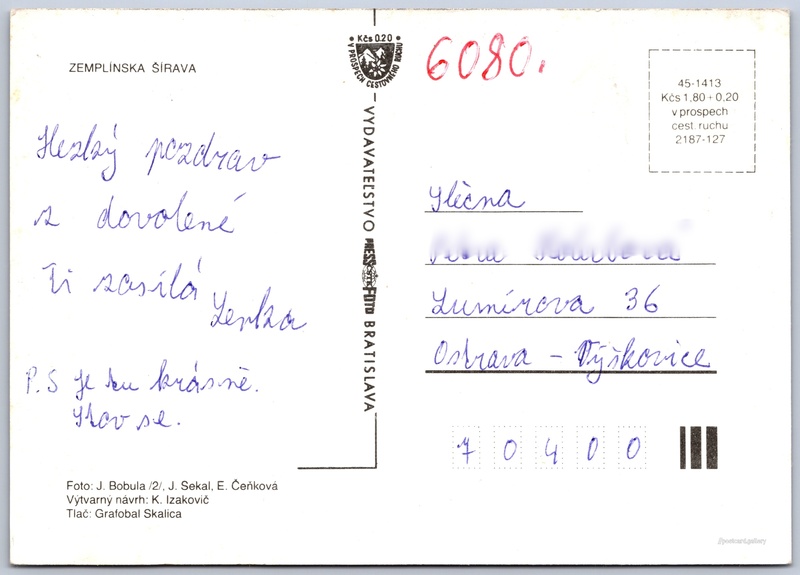 ZEMPLÍNSKA ŠÍRAVA
Hezký pozdrav
z dovolené
Ti zasílá
Lenka
P.S Je tu krásně.
Stav se.
Foto: J. Bobula /2/, J. Sekal, E. Čeňková
Výtvarný návrh: K. Izakovič
Tlač: Grafobal Skalica
Kčs 0.20
V PROSPECH CESTOVNÉHO RUCHU
VYDAVATEĽSTVO PRESSFOTO BRATISLAVA
6080.
45-1413
Kčs 1,80 + 0,20
v prospech
cest. ruchu
2187-127
Slečna
Lumírova 36
Ostrava - Výškovice
70400
//postcard.gallery